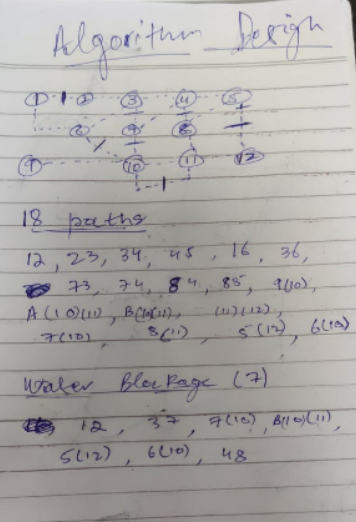 Algorithm Design
1 2 3 4 5
6 9 8
7 10 11 12
18 paths
12, 23, 34, 45, 16, 36,
73, 74, 84, 85, 9(10),
A(10)(11), B(10)(11), (11)(12),
7(10), 8(11), 5(12), 6(10)
Water Blockage (7)
12, 37, 7(10), B(10)(11),
5(12), 6(10), 48